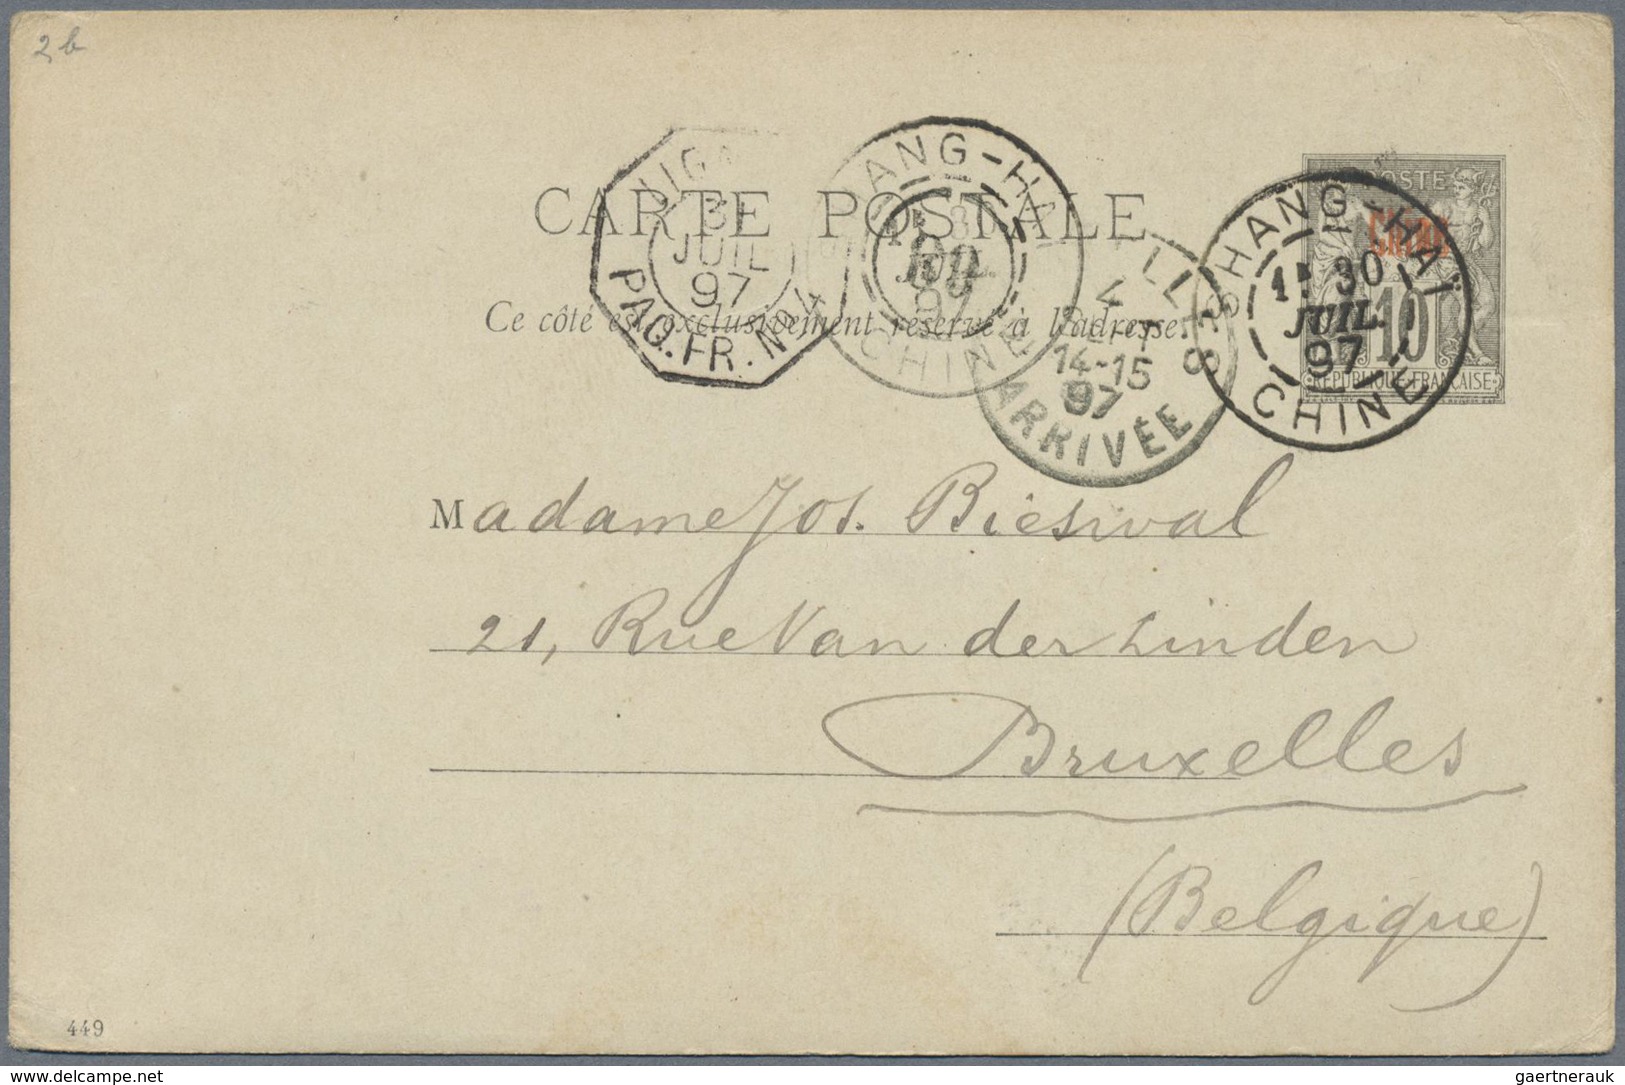 2b
CARTE POSTALE
Ce côté est exclusivement réservé à l'adresse.
LIGN
31
JUIL
97
PAQ. FR. No 4
HANG-HA
JUIL.
97
CHINE
4
SEPT
14-15
97
ARRIVÉE
8
POSTE
Chine
10
RÉPUBLIQUE FRANÇAISE
SHANG-HAÏ
1E 30
JUIL.
97
CHINE
Madame Jos. Bieswal
21, Rue Van der Linden
Bruxelles
(Belgique)
449
www.delcampe.net
gaertnerauk